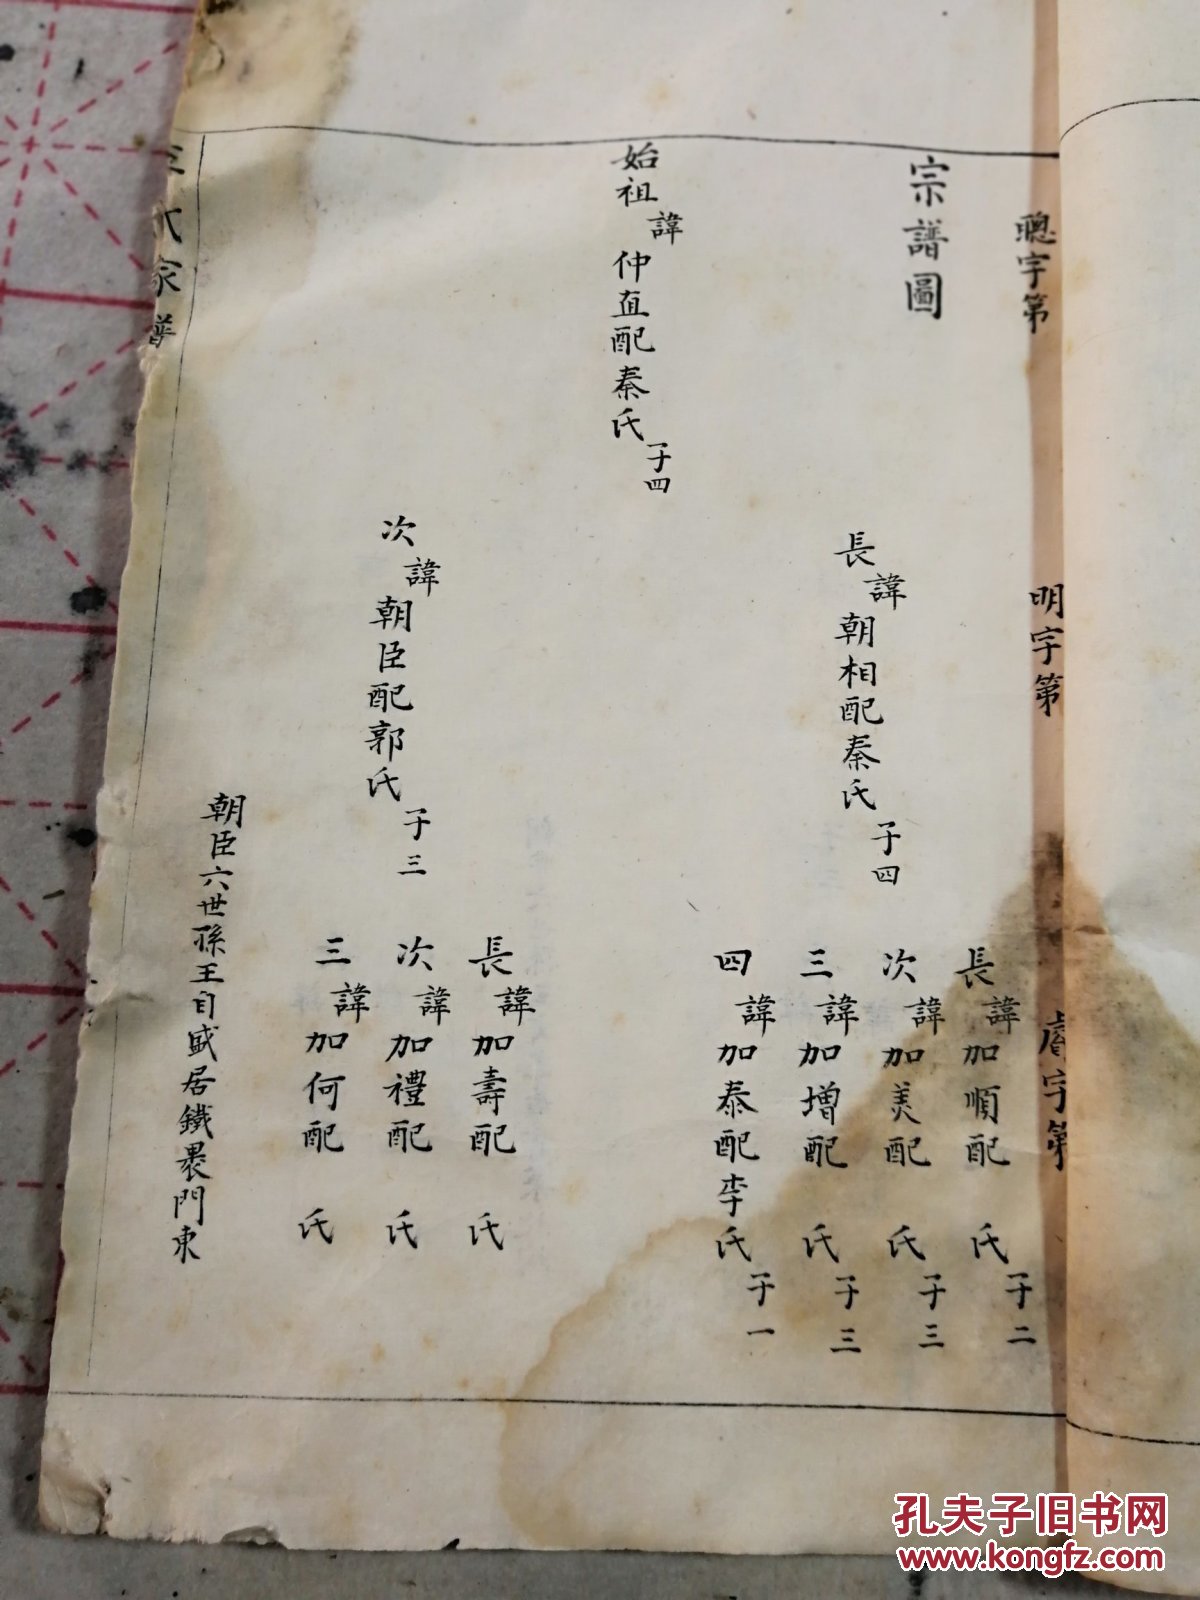 聰字第
明字第
字第
宗譜圖
始祖諱仲直配秦氏子四
長諱朝相配秦氏子四
長諱加順配 氏子二
次諱加美配 氏子三
三諱加增配 氏子三
四諱加泰配李氏子一
次諱朝臣配郭氏子三
長諱加壽配 氏
次諱加禮配 氏
三諱加何配 氏
朝臣六世孫王自盛居鐵裹門東
王氏家譜
孔夫子旧书网
www.kongfz.com